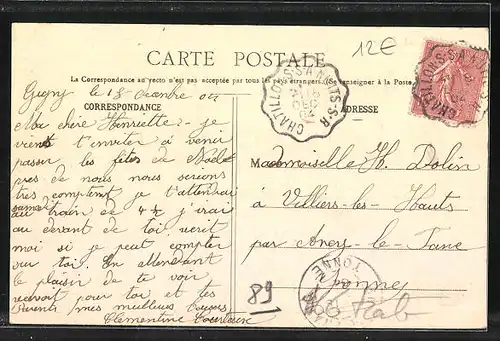 12€
CARTE POSTALE
La Correspondance au recto n'est pas acceptée par tous les pays étrangers. (Se renseigner à la Poste.)
CORRESPONDANCE
ADRESSE
CHATILLON-S-S A NUITS-S-R
Gigny le 18
Ma chère Henriette - je
vient t'inviter à venir
passer les fêtes de Noël
près de nous nous serions
très comptent je t'attendrai
samedi au train de 4 h je irai
au devant de toi écrit
moi si je peut compter
sur toi. En attendant
le plaisir de te voir
reçevoit pour toi et tes
Parents mes meilleurs
Clémentine
Mademoiselle H. Dolin
à Villiers-les-Hauts
par Ancy-le-Franc
Yonne
89
Rab